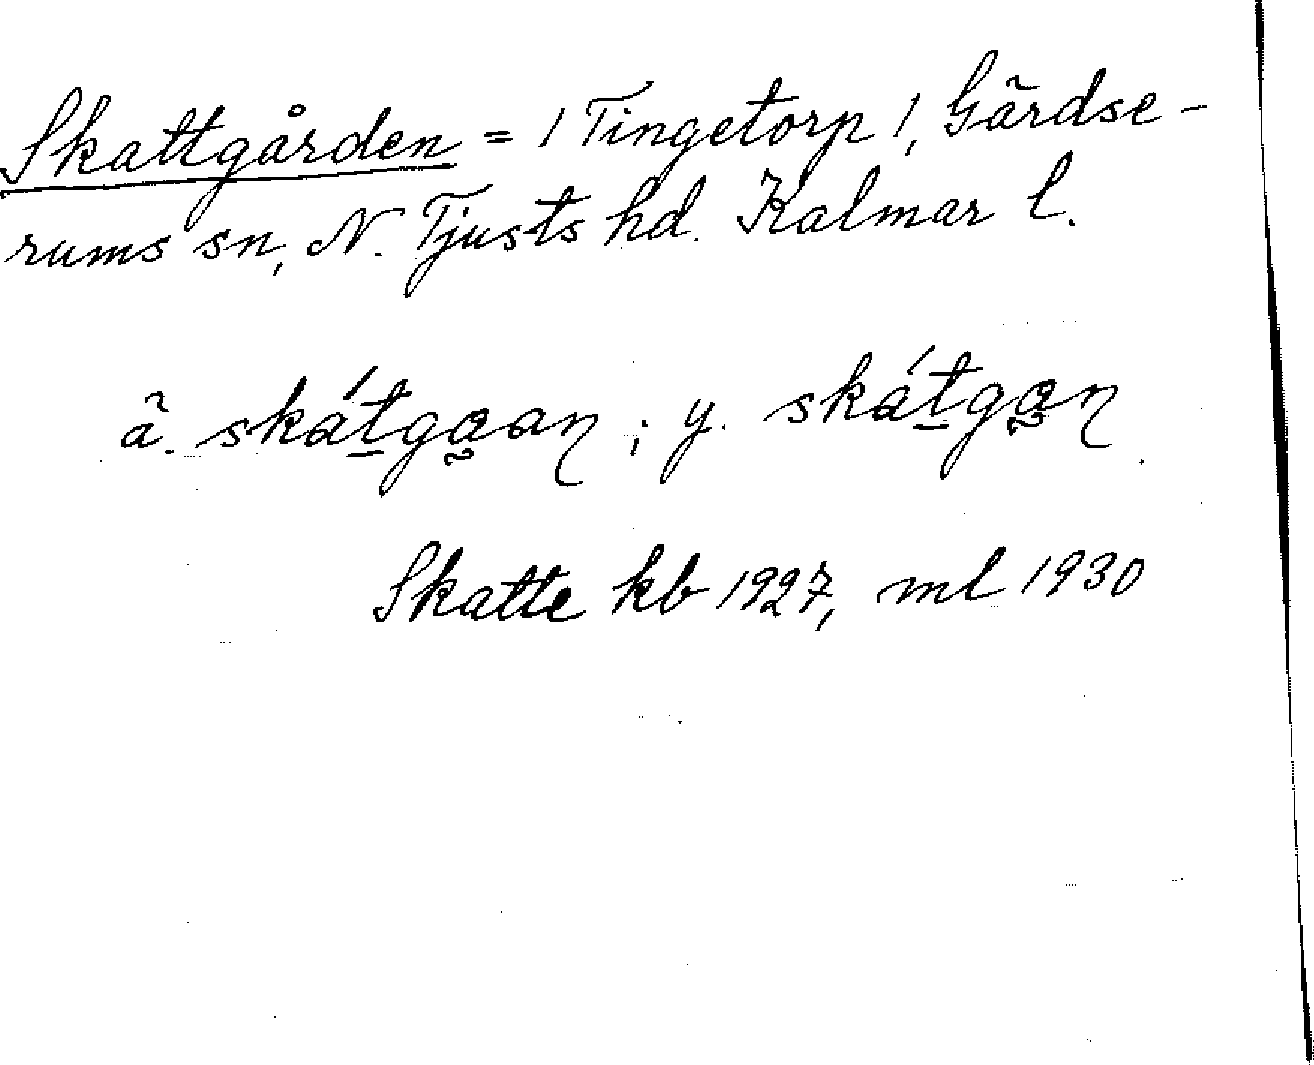 Skattgården = / Tingetorp /, Gärdse-
rums sn, N. Tjusts hd. Kalmar l.
ä. skátgaan ; y. skátgan
Skatte kb 1927, ml 1930